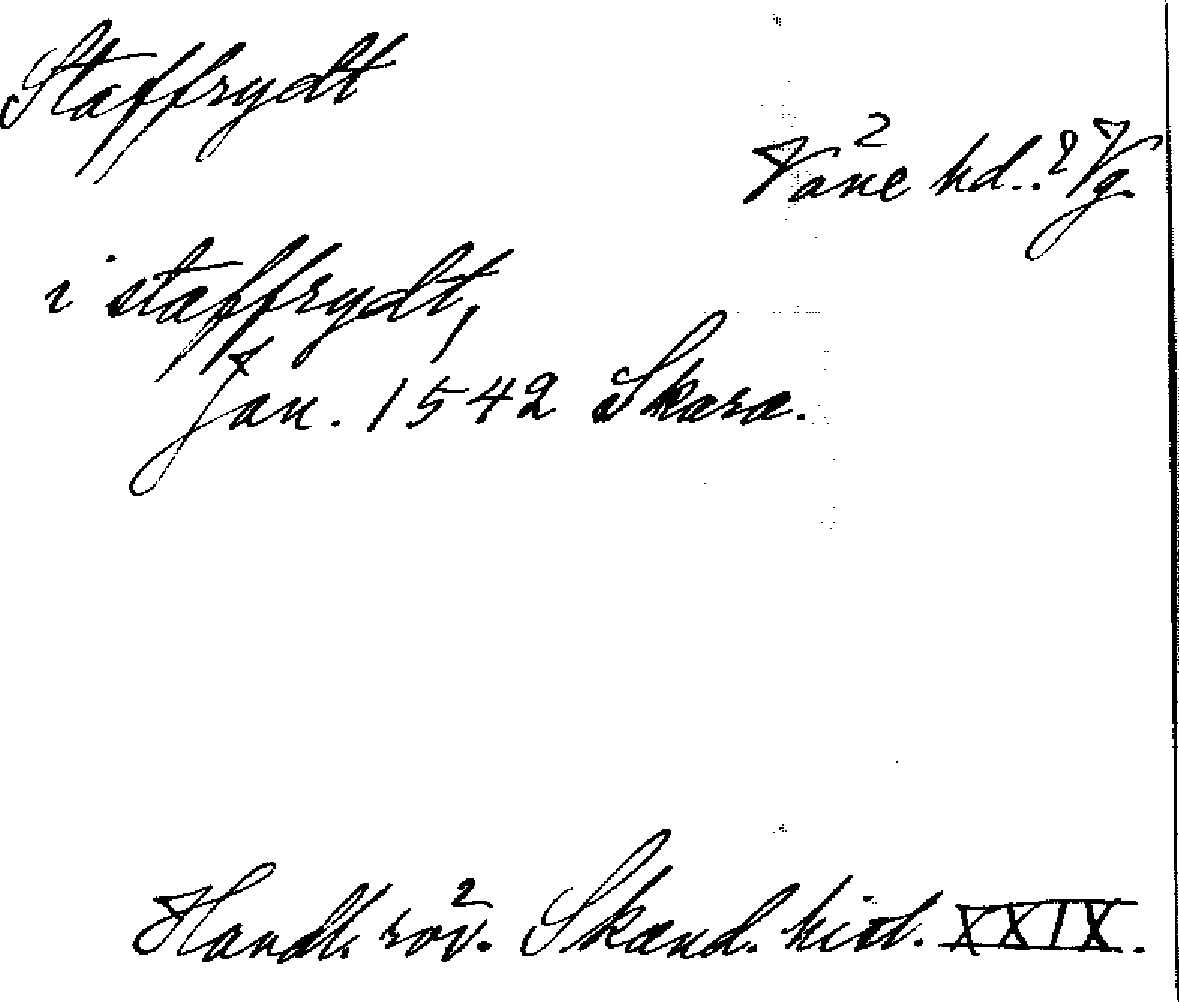 Staffrydt
Väne hd..? Vg.
i staffrydt,
Jan. 1542 Skara.
Handl. röv. Skand. hist. XXIX.